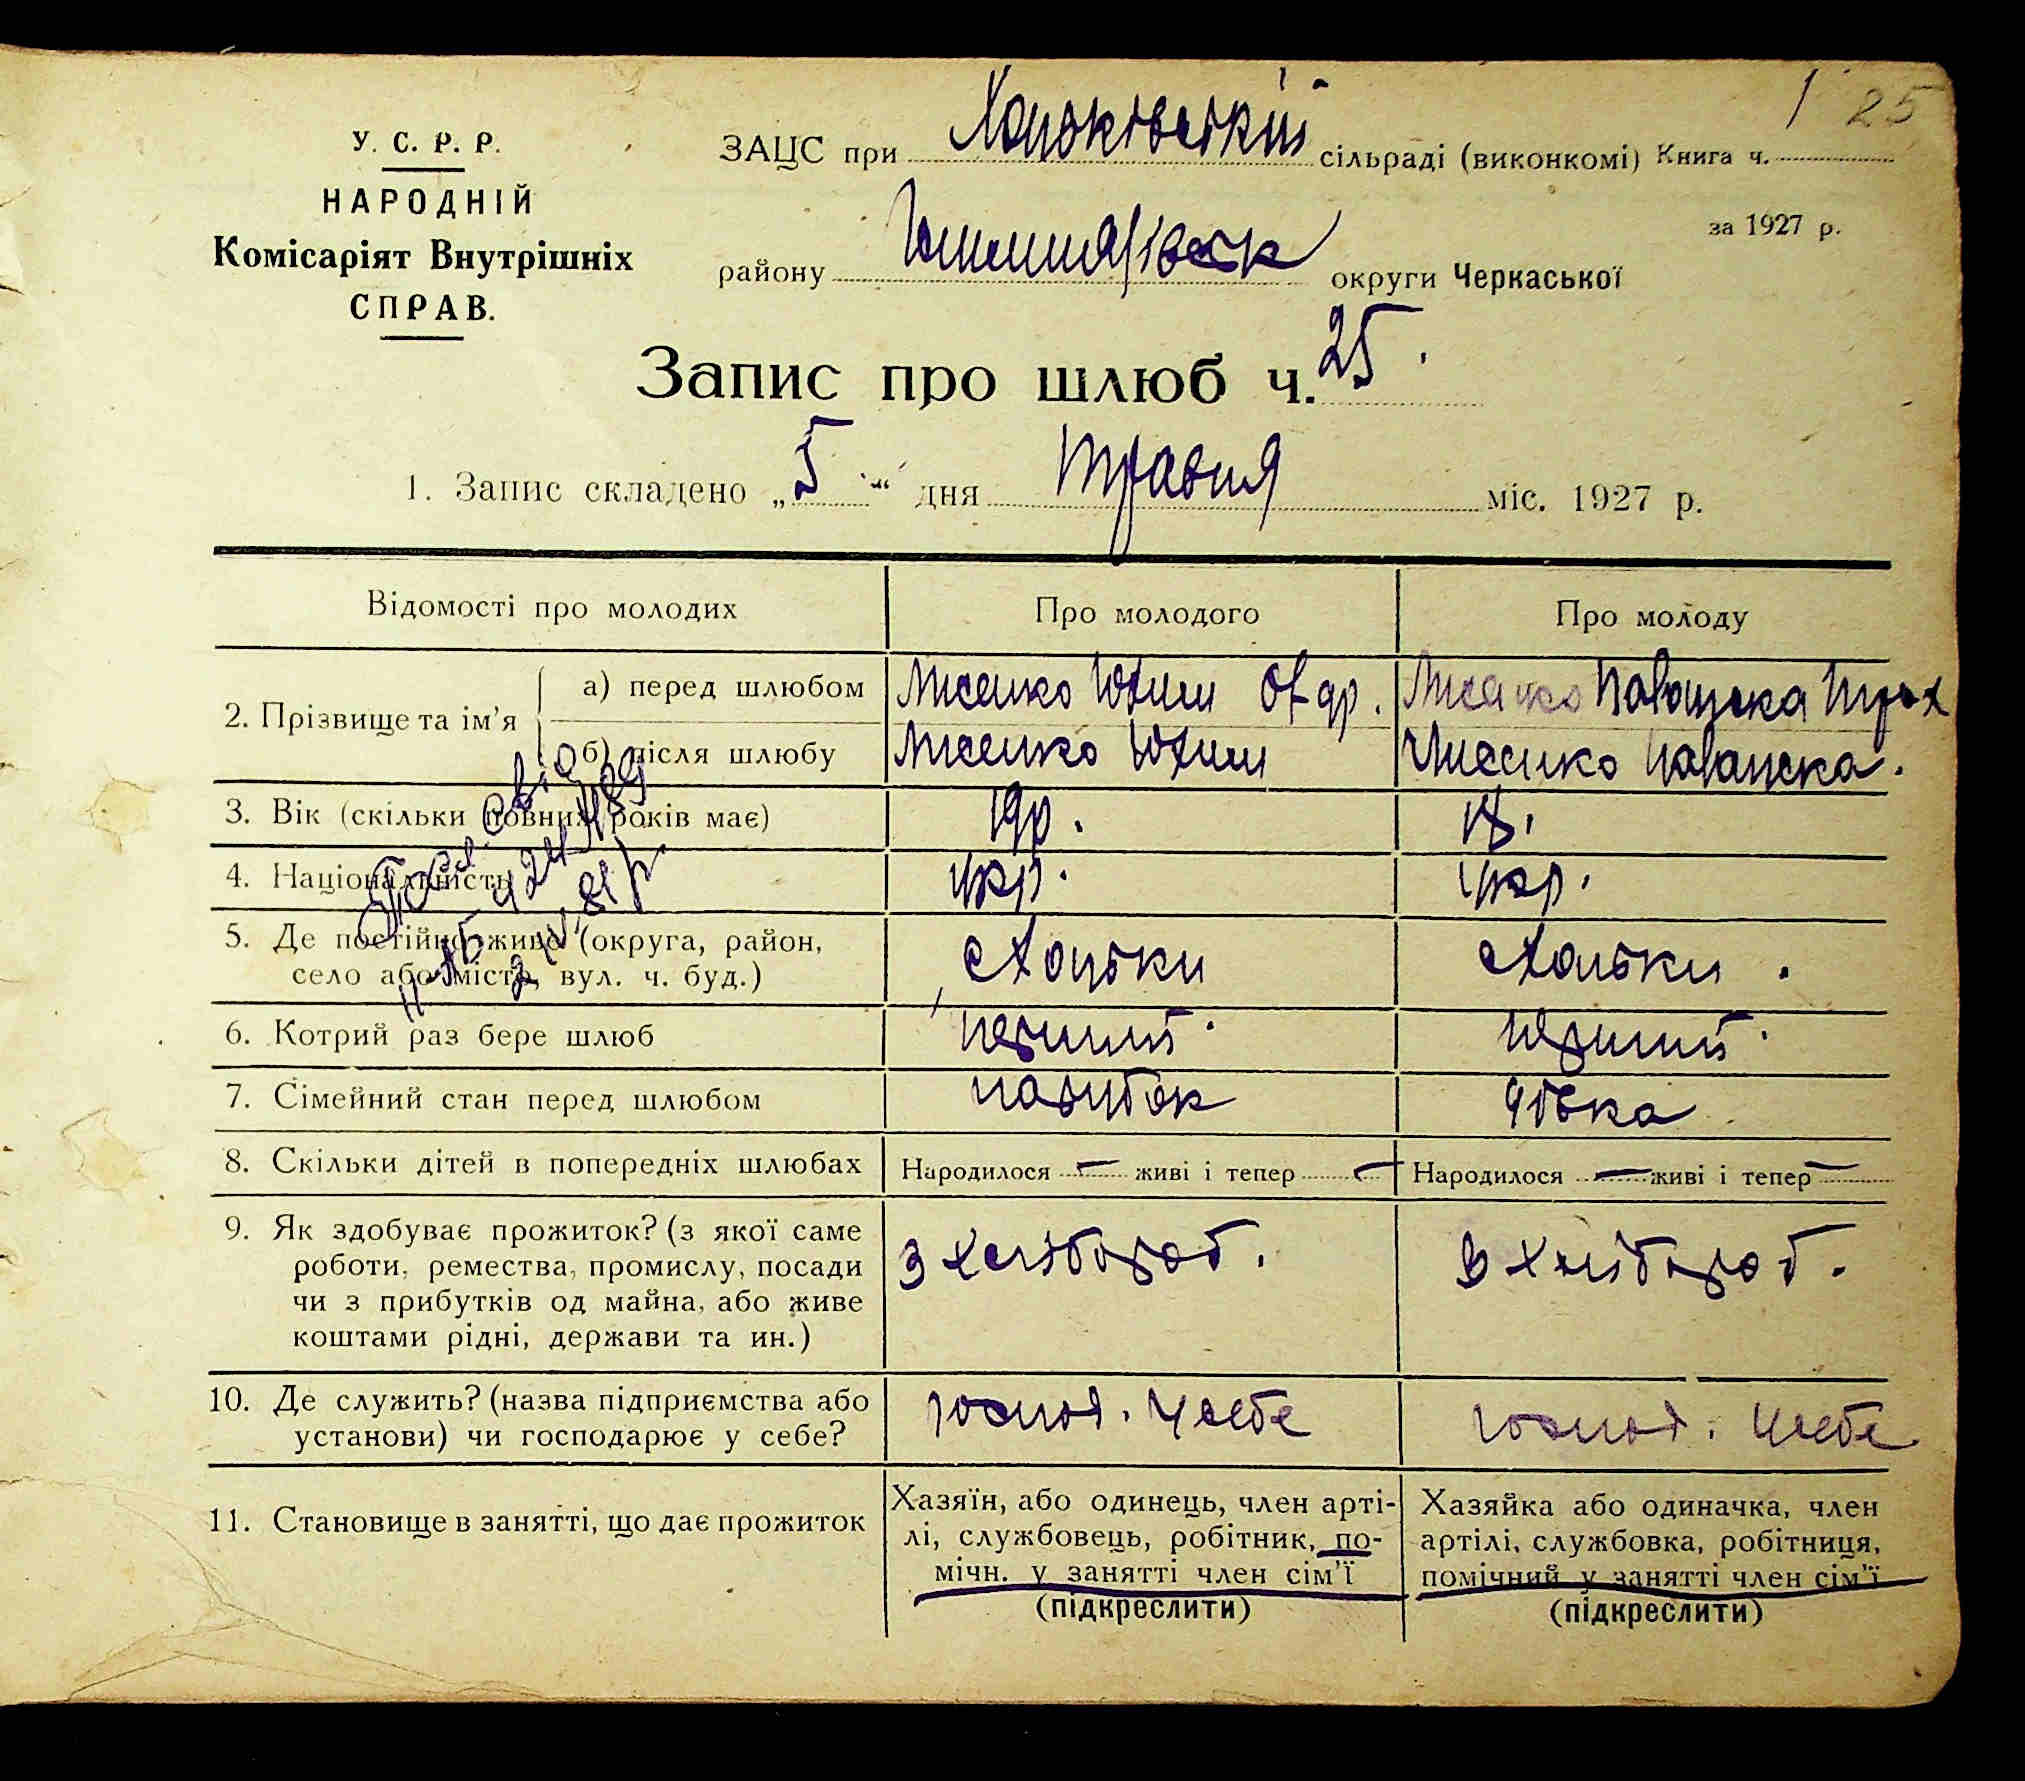 1 25
У. С. Р. Р.
НАРОДНІЙ
Комісаріят Внутрішніх
СПРАВ.
ЗАЦС при Хоцьківській сільраді (виконкомі) Книга ч.
за 1927 р.
району округи Черкаської
Запис про шлюб ч. 25.
1. Запис складено „5“ дня травня міс. 1927 р.
Відомості про молодих Про молодого Про молоду
2. Прізвище та ім'я
а) перед шлюбом Лисенко Юхим Лисенко Палажка
б) після шлюбу Лисенко Юхим Лисенко Палажка.
3. Вік (скільки повних років має) 19р. 18.
4. Національність укр. укр.
5. Де постійно живе (округа, район,
село або місто, вул. ч. буд.) с Хоцьки с Хоцьки.
6. Котрий раз бере шлюб перший перший
7. Сімейний стан перед шлюбом парубок дівка
8. Скільки дітей в попередніх шлюбах Народилося — живі і тепер — Народилося — живі і тепер —
9. Як здобуває прожиток? (з якої саме
роботи, ремества, промислу, посади
чи з прибутків од майна, або живе
коштами рідні, держави та ин.)
з хлібороб. з хлібороб.
10. Де служить? (назва підприємства або
установи) чи господарює у себе?
господ. у себе господ. у себе
11. Становище в занятті, що дає прожиток
Хазяїн, або одинець, член арті-
лі, службовець, робітник, по-
мічн. у занятті член сім'ї
(підкреслити)
Хазяйка або одиначка, член
артілі, службовка, робітниця,
помічний у занятті член сім'ї
(підкреслити)